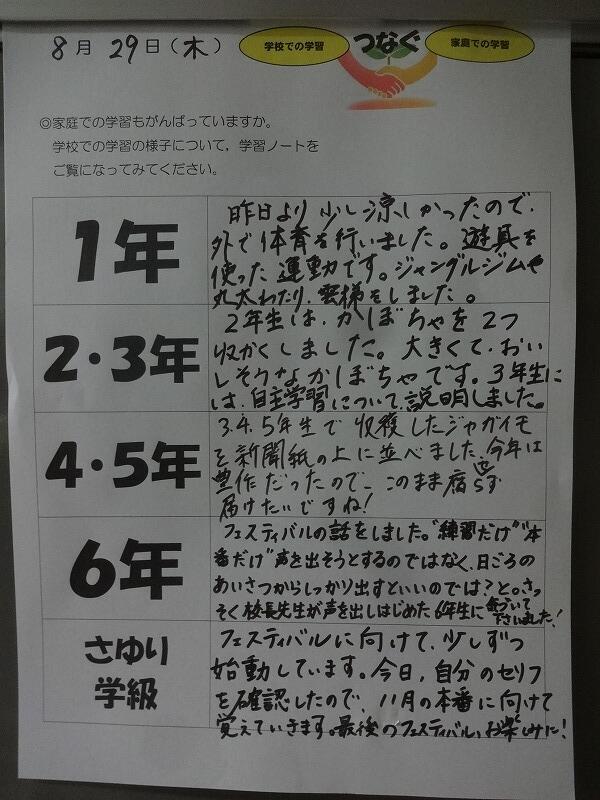 8月 29日(木)
学校での学習 つなぐ 家庭での学習
◎家庭での学習もがんばっていますか。
学校での学習の様子について,学習ノートを
ご覧になってみてください。
1年
昨日より少し涼しかったので、
外で体育を行いました。遊具を
使った運動です。ジャングルジムや
丸太わたり、雲梯をしました。
2・3年
2年生は、かぼちゃを2つ
収かくしました。大きくて、おい
しそうなかぼちゃです。3年生に
は、自主学習について、説明しました。
4・5年
3.4.5年生で収穫したジャガイモ
を新聞紙の上に並べました。今年は
豊作だったので、このまま腐らず
届けたいですね!
6年
フェスティバルの話をしました。“練習だけ”“本
番だけ”声を出そうとするのではなく、日ごろの
あいさつからしっかり出すといいのでは?と。さっ
そく校長先生が声を出しはじめた6年生に気づいて
下さいました!
さゆり
学級
フェスティバルに向けて、少しずつ
始動しています。今日、自分のセリフ
を確認したので、11月の本番に向けて
覚えていきます。最後のフェスティバル、お楽しみに!